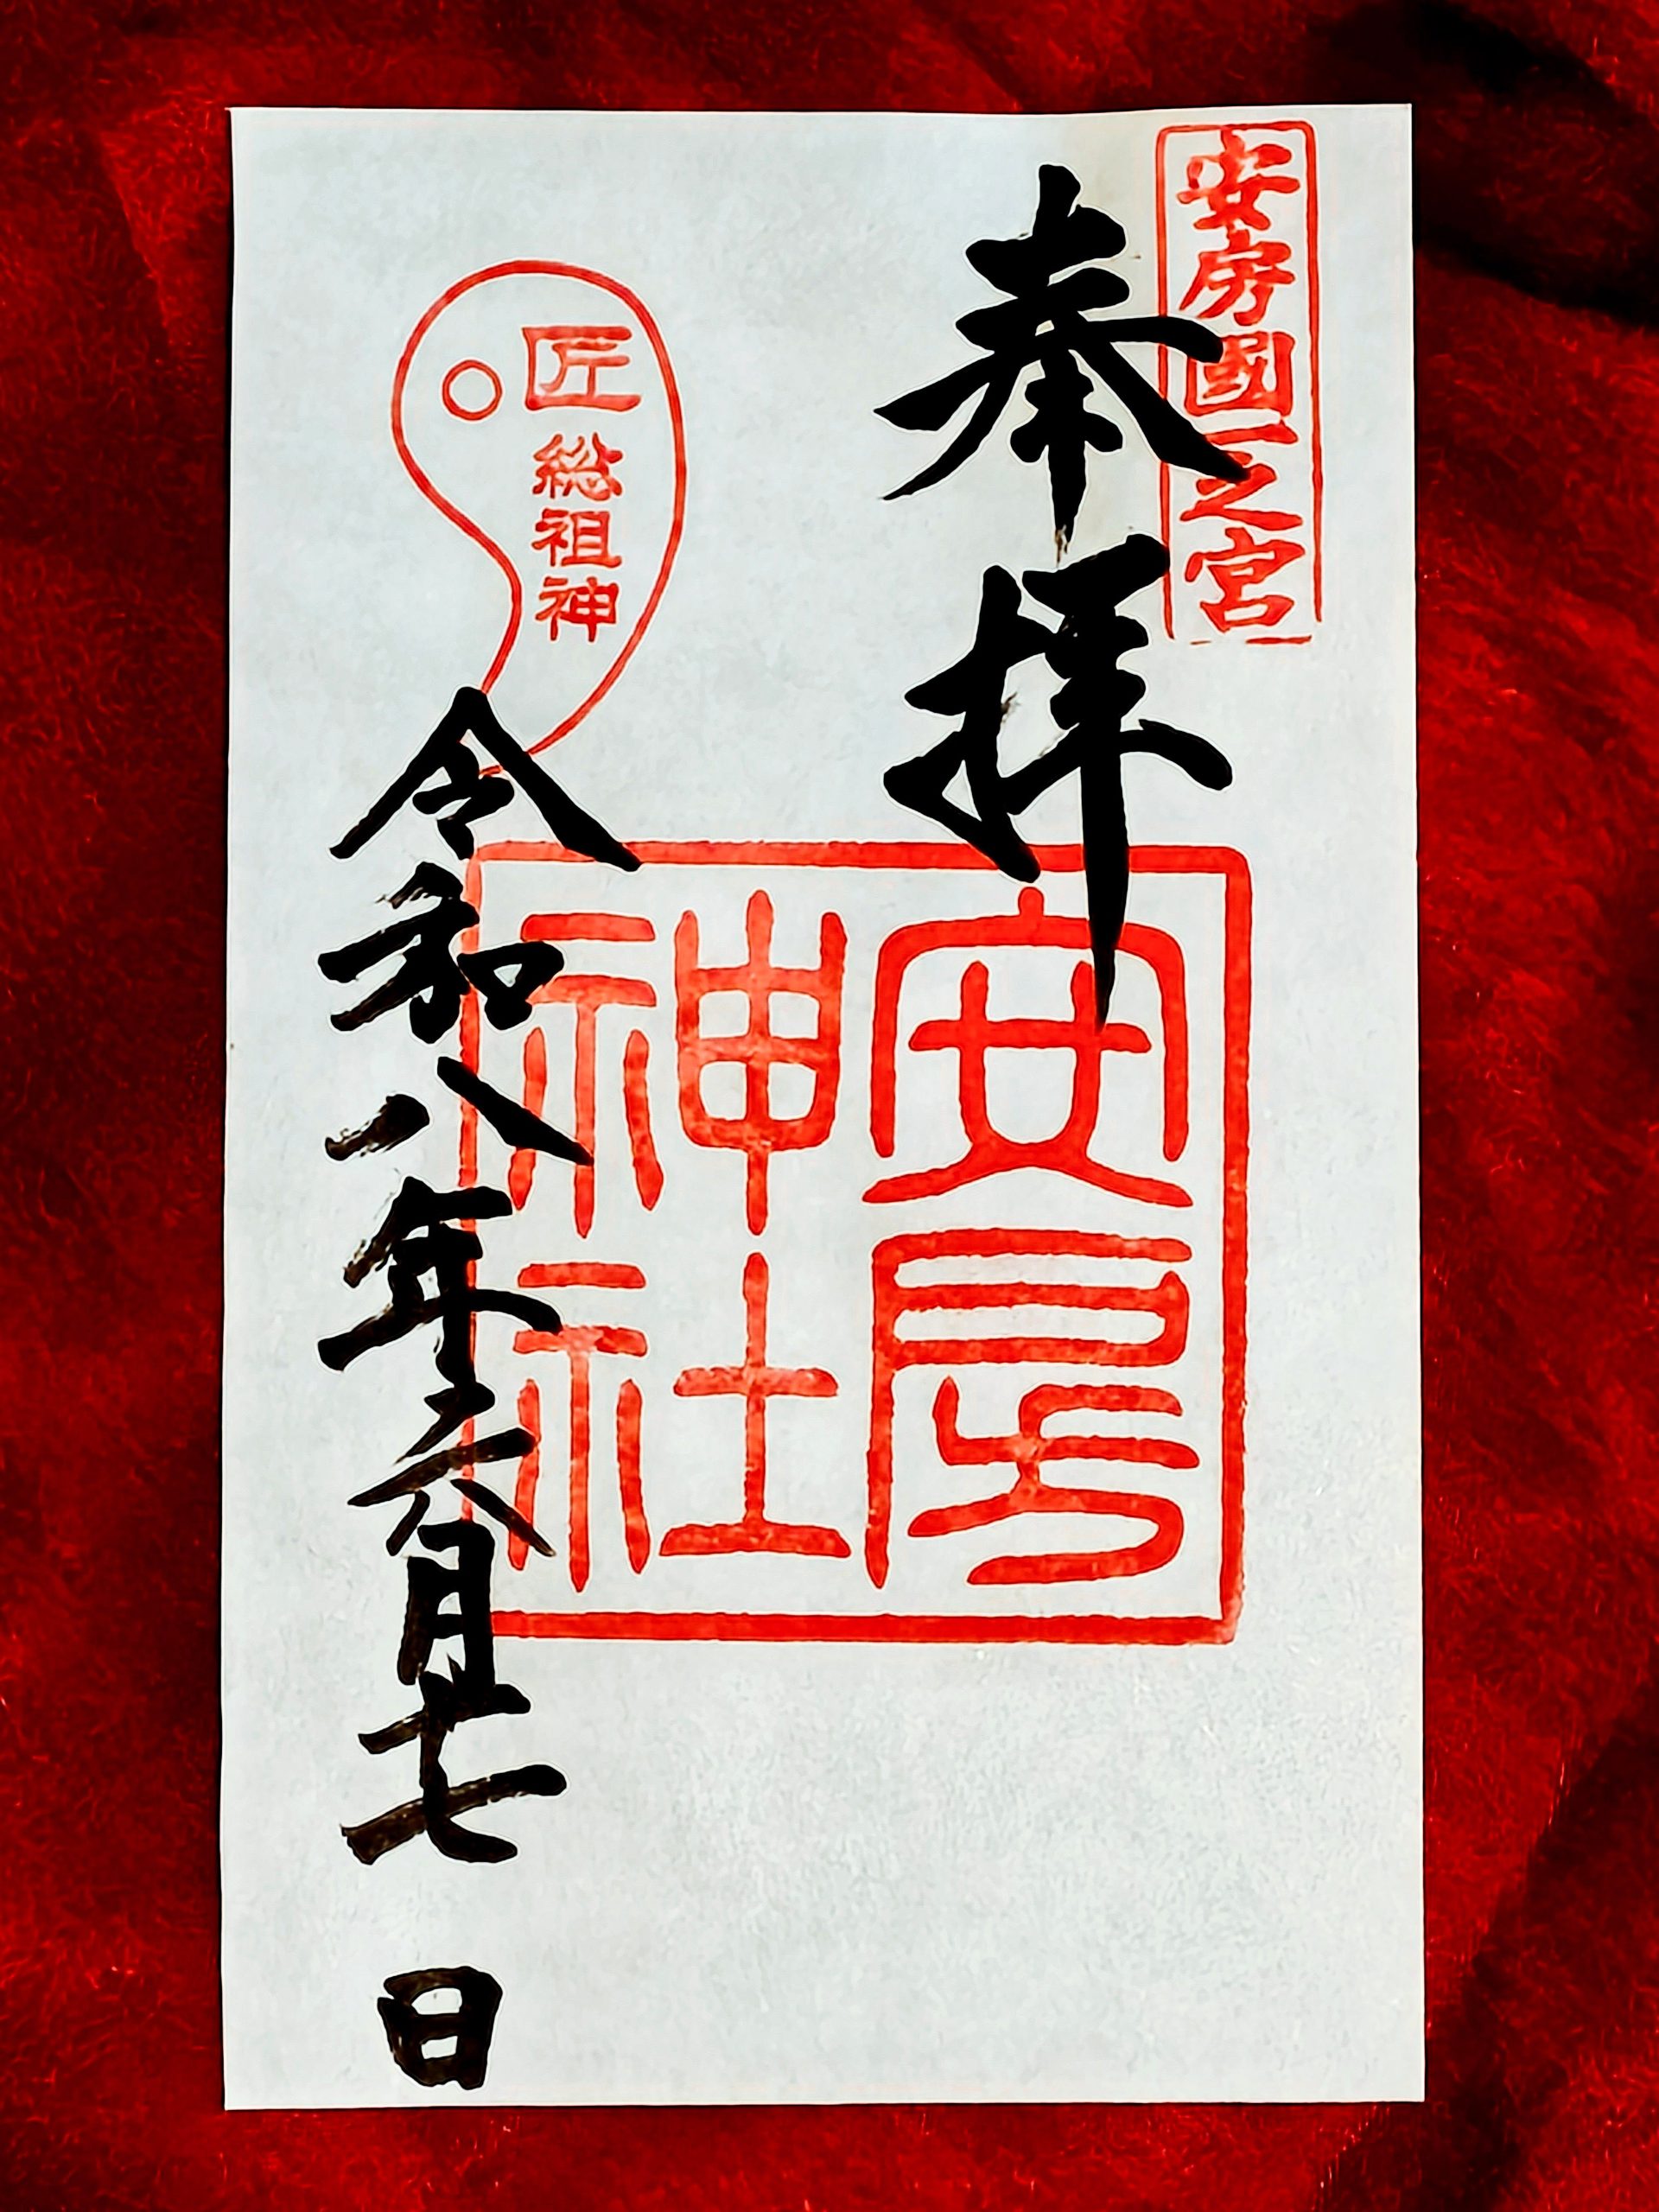 安房國一之宮
奉拝
安房
神社
匠総祖神
令和八年六月七日